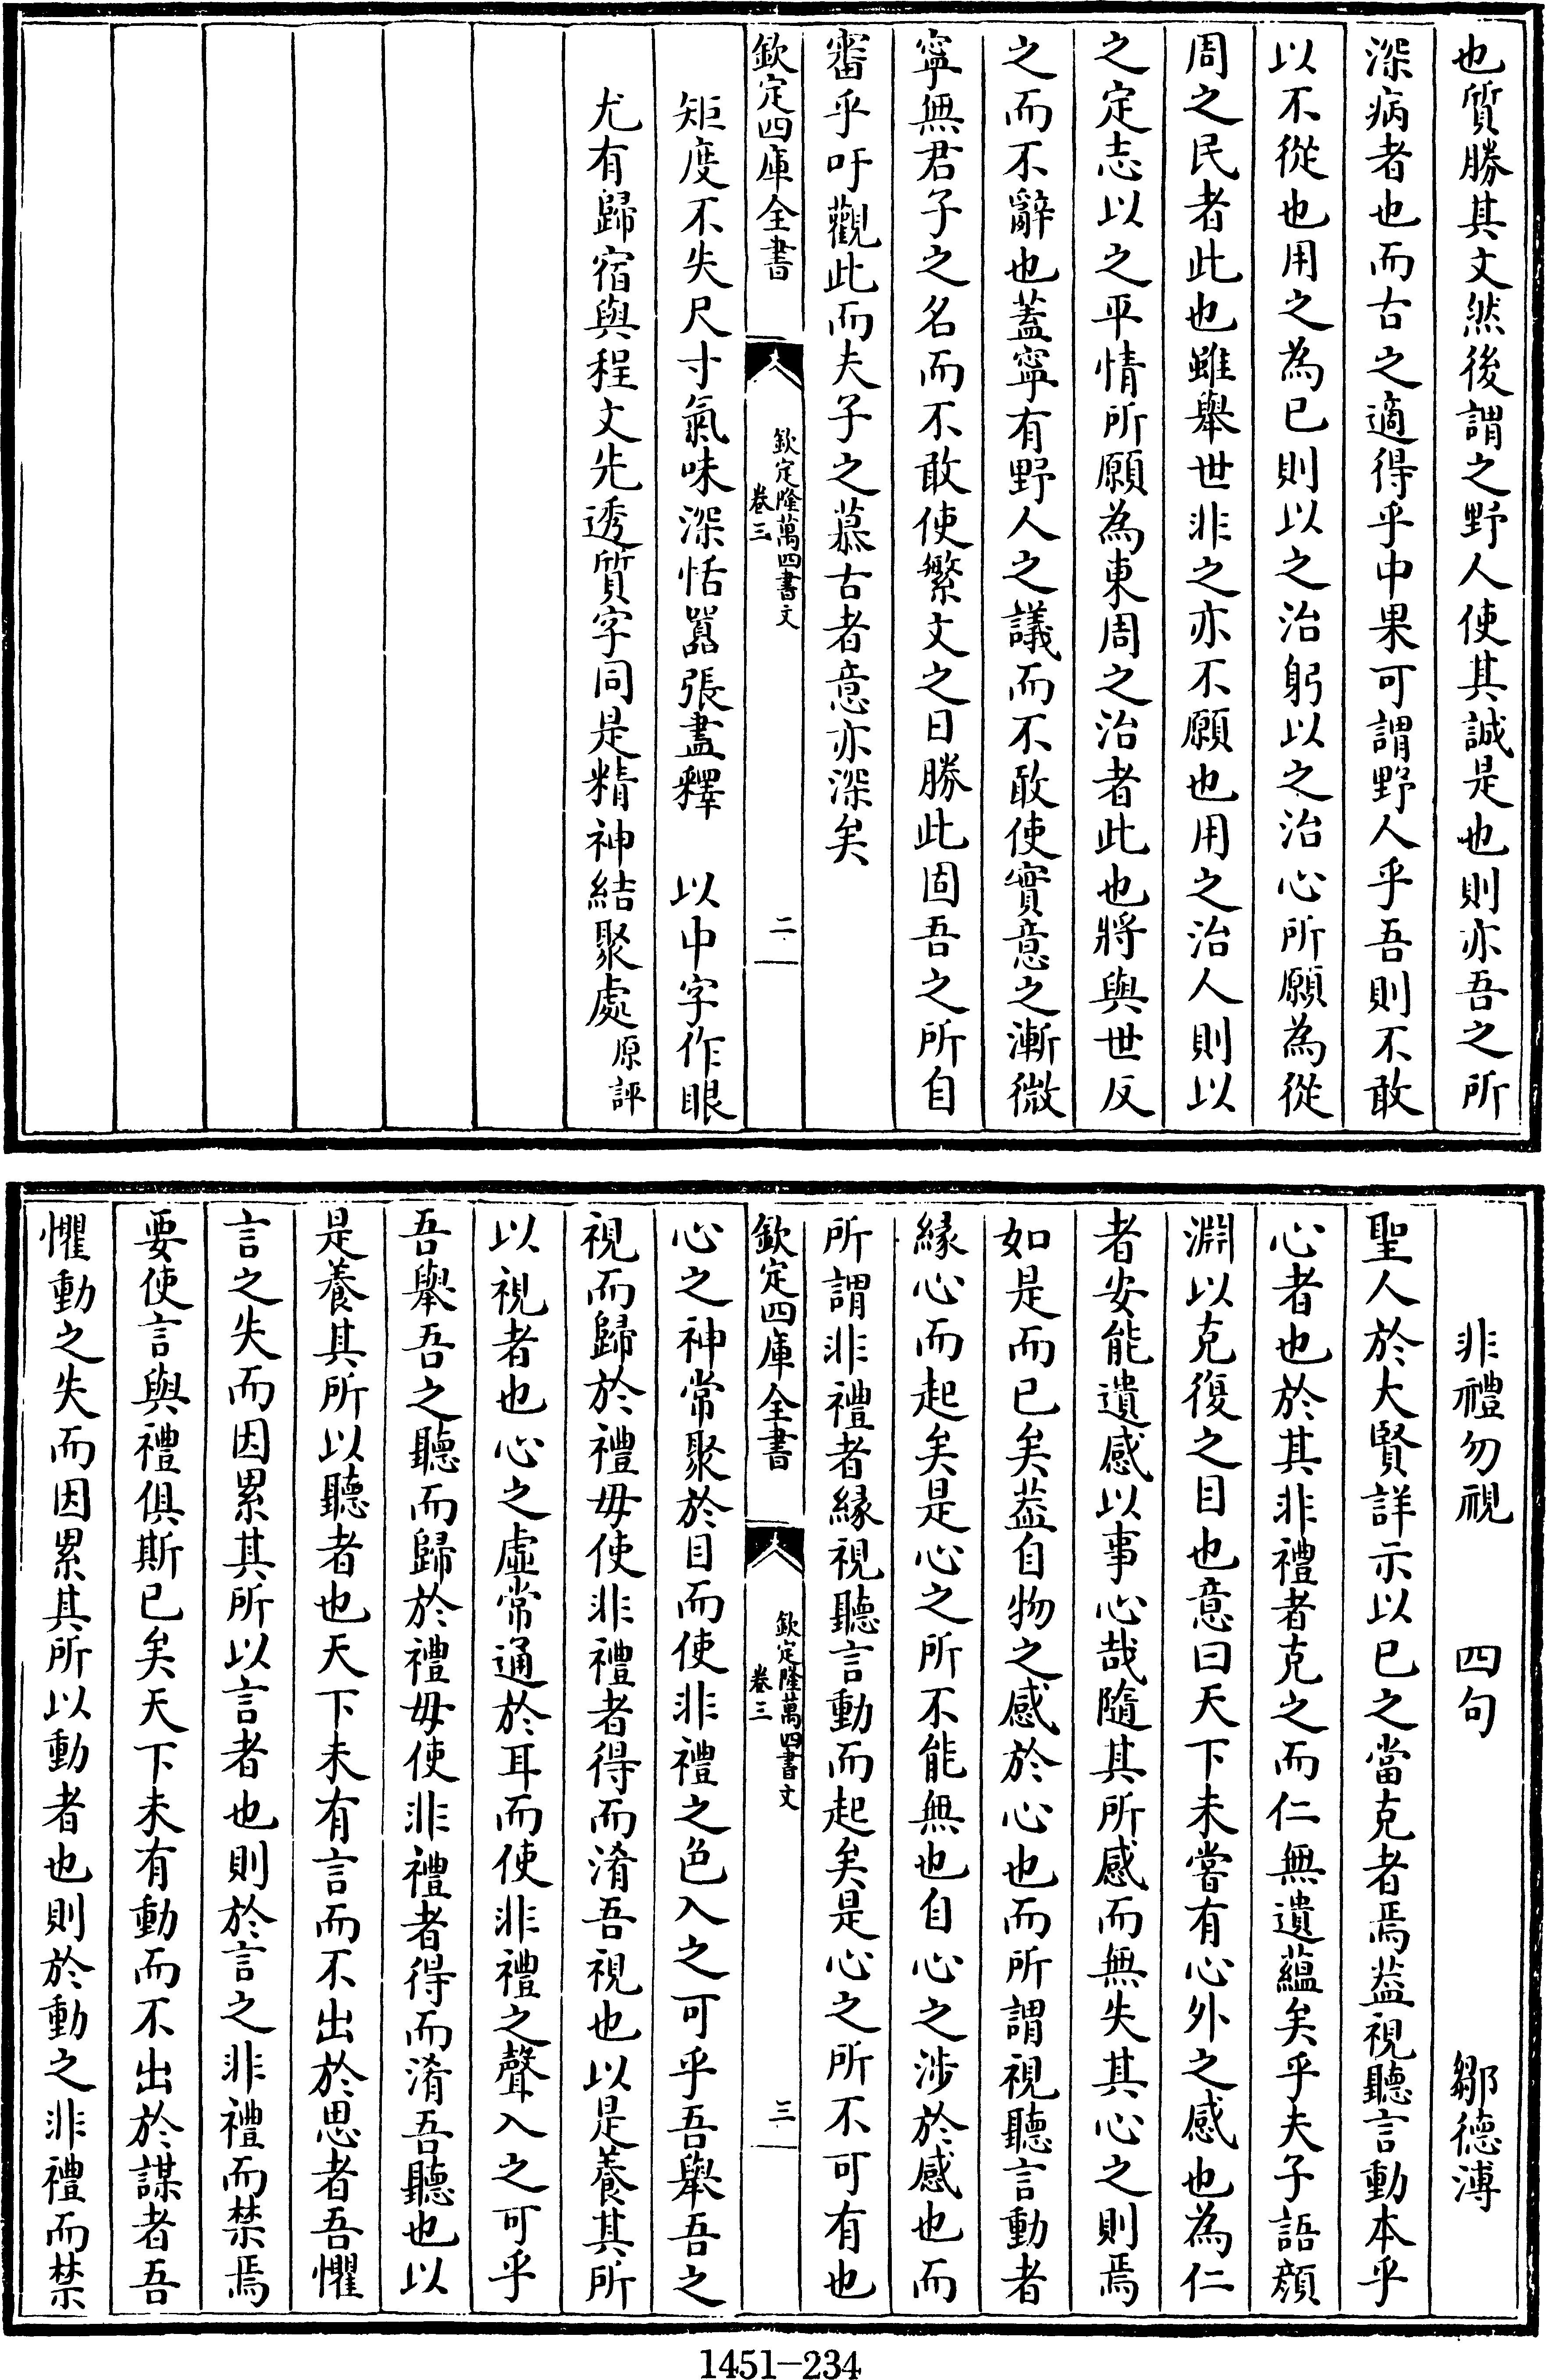 也質勝其文然後謂之野人使其誠是也則亦吾之所
深病者也而古之適得乎中果可謂野人乎吾則不敢
以不從也用之為已則以之治躬以之治心所願為從
周之民者此也雖舉世非之亦不願也用之治人則以
之定志以之平情所願為東周之治者此也將與世反
之而不辭也蓋寧有野人之議而不敢使實意之漸微
寧無君子之名而不敢使繁文之日勝此固吾之所自
審乎吁觀此而夫子之慕古者意亦深矣
欽定四庫全書
欽定隆萬四書文
卷三
二
矩度不失尺寸氣味深恬囂張盡釋　以中字作眼
尤有歸宿與程文先透質字同是精神結聚處原評
非禮勿視　四句　鄒德溥
聖人於大賢詳示以已之當克者焉葢視聽言動本乎
心者也於其非禮者克之而仁無遺蘊矣乎夫子語顏
淵以克復之目也意曰天下未嘗有心外之感也為仁
者安能遺感以事心哉隨其所感而無失其心之則焉
如是而已矣葢自物之感於心也而所謂視聽言動者
緣心而起矣是心之所不能無也自心之涉於感也而
所謂非禮者緣視聽言動而起矣是心之所不可有也
欽定四庫全書
欽定隆萬四書文
卷三
三
心之神常聚於目而使非禮之色入之可乎吾舉吾之
視而歸於禮毋使非禮者得而淆吾視也以是養其所
以視者也心之虛常通於耳而使非禮之聲入之可乎
吾舉吾之聽而歸於禮毋使非禮者得而淆吾聽也以
是養其所以聽者也天下未有言而不出於思者吾懼
言之失而因累其所以言者也則於言之非禮而禁焉
要使言與禮俱斯已矣天下未有動而不出於謀者吾
懼動之失而因累其所以動者也則於動之非禮而禁
1451-234